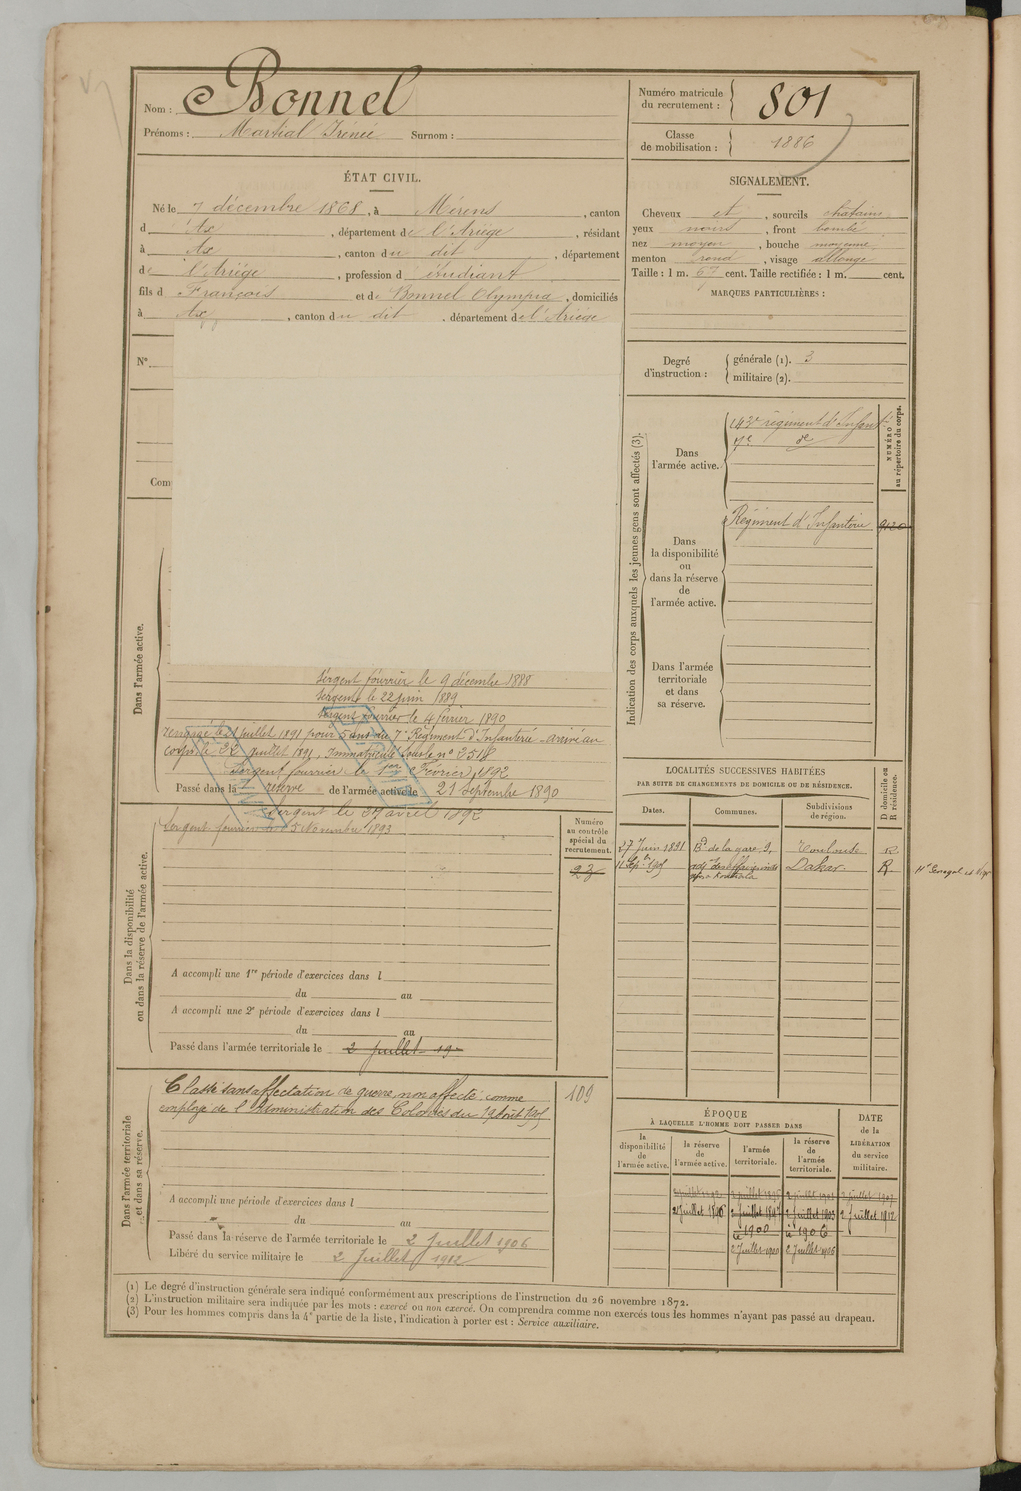 Nom : Bonnel
Prénoms : Martial Irénée Surnom :
Numéro matricule du recrutement : 801
Classe de mobilisation : 1886
ÉTAT CIVIL.
Né le 7 décembre 1868, à Mérens, canton
d Ax, département de l'Ariége, résidant
à Ax, canton du dit, département
de l'Ariége, profession d étudiant
fils d François et de Bonnel Olympia, domiciliés
à Ax, canton du dit, département de l'Ariége
N°
Com
SIGNALEMENT.
Cheveux et, sourcils chatains
yeux noirs, front bombé
nez moyen, bouche moyenne
menton rond, visage allongé
Taille : 1 m. 67 cent. Taille rectifiée : 1 m. cent.
MARQUES PARTICULIÈRES :
Degré d'instruction :
générale (1). 3
militaire (2).
Indication des corps auxquels les jeunes gens sont affectés (3).
NUMÉRO au répertoire du corps.
Dans l'armée active.
143e régiment d'Infant
7e de
Dans la disponibilité ou dans la réserve de l'armée active.
Régiment d'Infanterie
Dans l'armée territoriale et dans sa réserve.
Dans l'armée active.
Sergent fourrier le 9 décembre 1888
Sergent le 22 juin 1889
Sergent fourrier le 4 février 1890
rengagé le juillet 1891 pour 5 ans au 7e Régiment d'Infanterie - arrivé au
corps le 22 juillet 1891, Immatriculé sous le n° 3518
Sergent fourrier le 1er Février 1892
Passé dans la réserve de l'armée active le 21 Septembre 1890
Sergent le 27 avril 1892
Sergent fourrier le 5 Novembre 1893
Dans la disponibilité ou dans la réserve de l'armée active.
Numéro au contrôle spécial du recrutement.
23
A accompli une 1re période d'exercices dans l
du au
A accompli une 2e période d'exercices dans l
du au
Passé dans l'armée territoriale le 2 juillet 19
LOCALITÉS SUCCESSIVES HABITÉES
PAR SUITE DE CHANGEMENTS DE DOMICILE OU DE RÉSIDENCE.
D domicile ou R résidence.
Dates. Communes. Subdivisions de région.
27 Juin 1891 Bd de la gare, 9, Toulouse R.
11 Sep. 1905 adj. des aff. indig. Dakar. R. Ht Sénégal et Niger
Dans l'armée territoriale et dans sa réserve.
Classé sans affectation de guerre, non affecté, comme
employé de l'Administration des Colonies du 19 Août 1905
109
A accompli une période d'exercices dans l
du au
Passé dans la réserve de l'armée territoriale le 2 Juillet 1906
Libéré du service militaire le 2 Juillet 1912
ÉPOQUE
À LAQUELLE L'HOMME DOIT PASSER DANS
la disponibilité de l'armée active.
la réserve de l'armée active.
l'armée territoriale.
la réserve de l'armée territoriale.
DATE de la LIBÉRATION du service militaire.
2 juillet 1896 2 Juillet 1897 2 Juillet 1903 2 Juillet 1912
le 1900 le 1906
2 Juillet 1900 2 Juillet 1906
(1) Le degré d'instruction générale sera indiqué conformément aux prescriptions de l'instruction du 26 novembre 1872.
(2) L'instruction militaire sera indiquée par les mots : exercé ou non exercé. On comprendra comme non exercés tous les hommes n'ayant pas passé au drapeau.
(3) Pour les hommes compris dans la 4e partie de la liste, l'indication à porter est : Service auxiliaire.